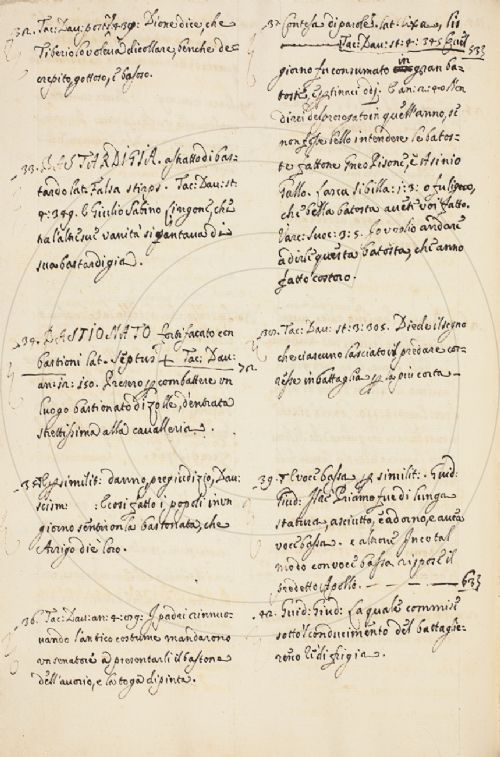 32. Tac: Dav: post: 439: Dione dice, che
Tiberio lo voleva dicollare, benche de
crepito, gottoso, e basoso.
33. BASTARDIGIA. astratto di bas-
tardo lat. Falsa stirps. Tac: Dav: st:
4: 349. E Giulio Sabino Lingone, che
tra l'altre sue vanità si vantava di
sua bastardigia.
34. BASTIONATO fortificato con
bastioni lat. septus Tac: Dav:
an: 12: 150. Presero combattere un
luogo bastionato di zolle, d'entrata
strettissima alla cavalleria.
35. similit: danno, pregiudizio, Dav:
scism: : E così fatto i popoli in un
giorno sentiron la bastonata, che
Arrigo die loro.
36. Tac: Dav: an: 4: I padri rinnuo-
vando l'antico costume mandarono
un senatore a presentarli il bastone
dell'avorio, e la toga dipinta.
37. Contesa di parole. lat. lixa,
Tac: Dav: st: 4: 345 Quel 533
giorno fu consumato in gran ba-
toste, e ostinaci odj. E an: 2: 40 Non
direi del prorogato in quell'anno, se
non fosse bello intendere le batos-
te fattone Gneo Pisone, e Asinio
Gallo. Lasca Sibilla: 1: 3: o fu ligneo,
che bella batosta avete voi fatto.
Varc: Suoc: 3: 5. Io voglio andare
a dirle questa batosta, che anno
fatto costoro.
Tac: Dav: st: 3: 305. Diede il segno
che ciascuno lasciato il predare cor-
resse in battaglia la più corta
39. voce bassa similit: Guid:
Giud: Il Re Priamo fue di lunga
statura, asciutto, e adorno, e avea
voce bassa. e altrove In cotal
modo con voce bassa rispose il
predetto Apollo. 533
Guid: Giud: La quale commise
sotto 'l conducimento del battaglie-
resco Re di frigia.